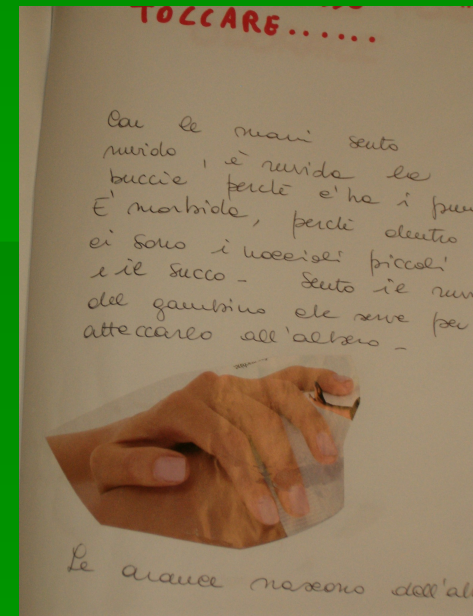 TOCCARE......
Con le mani sento
ruvido, è ruvida la
buccia perchè c'ha i pun
E' morbida, perchè dentro
ci sono i noccioli piccoli
e il succo - Sento il ruv
del gambino che serve per
attaccarlo all'albero -
Le arance nascono dall'al